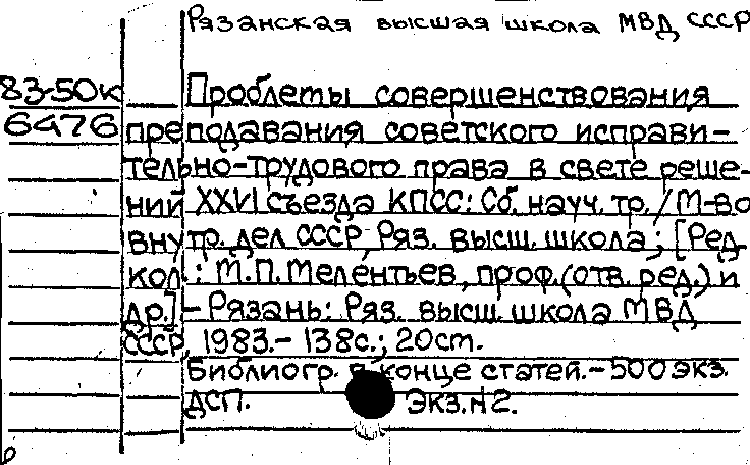 Рязанская высшая школа МВД СССР
83-50к Проблемы совершенствования
6476 преподавания советского исправи-
тельно-трудового права в свете реше-
ний XXVI съезда КПСС: Сб. науч. тр. / М-во
внутр. дел СССР, Ряз. высш. школа; [Ред-
кол.: М.П. Мелентьев, проф. (отв. ред.) и
др.] - Рязань: Ряз. высш. школа МВД
СССР, 1983. - 138с.; 20см.
Библиогр. в конце статей. - 500 экз.
ДСП. Экз. №2.